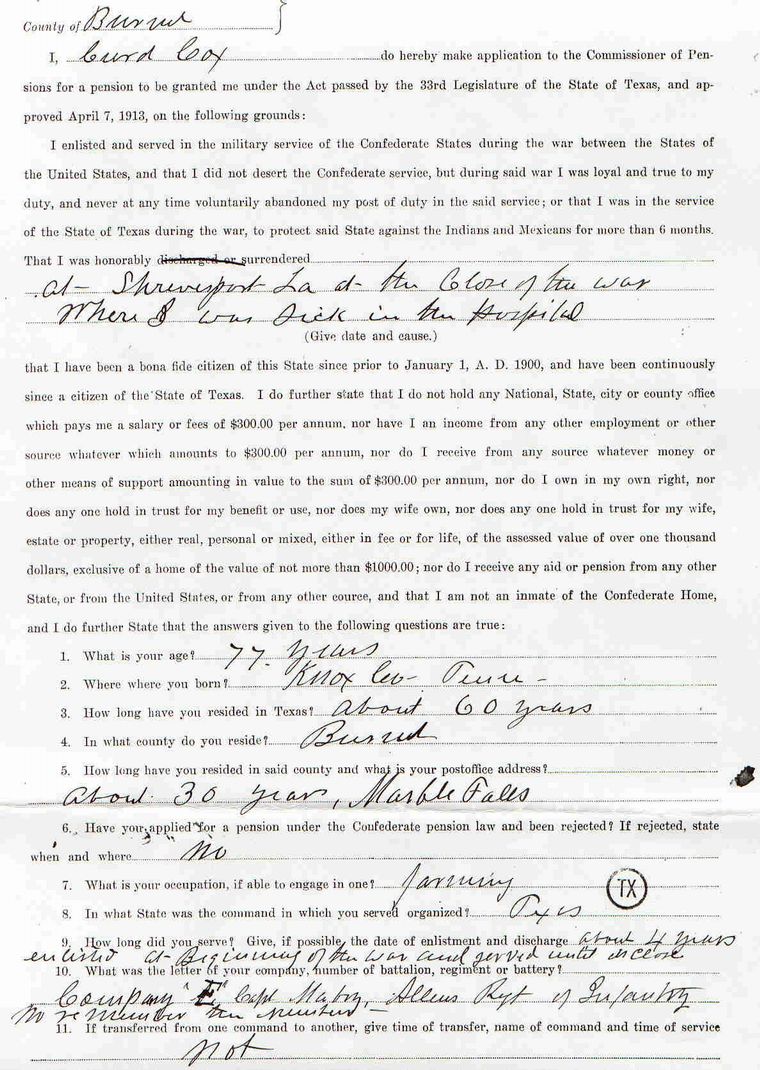 County of Burnet }
I, Curd Cox do hereby make application to the Commissioner of Pen-
sions for a pension to be granted me under the Act passed by the 33rd Legislature of the State of Texas, and ap-
proved April 7, 1913, on the following grounds:
I enlisted and served in the military service of the Confederate States during the war between the States of
the United States, and that I did not desert the Confederate service, but during said war I was loyal and true to my
duty, and never at any time voluntarily abandoned my post of duty in the said service; or that I was in the service
of the State of Texas during the war, to protect said State against the Indians and Mexicans for more than 6 months.
That I was honorably discharged or surrendered
at Shreveport La at the Close of the war
Where I was sick in the Hospital
(Give date and cause.)
that I have been a bona fide citizen of this State since prior to January 1, A. D. 1900, and have been continuously
since a citizen of the State of Texas. I do further state that I do not hold any National, State, city or county office
which pays me a salary or fees of $300.00 per annum, nor have I an income from any other employment or other
source whatever which amounts to $300.00 per annum, nor do I receive from any source whatever money or
other means of support amounting in value to the sum of $300.00 per annum, nor do I own in my own right, nor
does any one hold in trust for my benefit or use, nor does my wife own, nor does any one hold in trust for my wife,
estate or property, either real, personal or mixed, either in fee or for life, of the assessed value of over one thousand
dollars, exclusive of a home of the value of not more than $1000.00; nor do I receive any aid or pension from any other
State, or from the United States, or from any other cource, and that I am not an inmate of the Confederate Home,
and I do further State that the answers given to the following questions are true:
1. What is your age? 77 years
2. Where where you born? Knox Co- Tenn -
3. How long have you resided in Texas? about 60 years
4. In what county do you reside? Burnet
5. How long have you resided in said county and what is your postoffice address?
about 30 years, Marble Falls
6. Have you applied for a pension under the Confederate pension law and been rejected? If rejected, state
when and where No
7. What is your occupation, if able to engage in one? farming
TX
8. In what State was the command in which you served organized? Texas
9. How long did you serve? Give, if possible, the date of enlistment and discharge about 4 years
enlisted at Beginning of the war and served until its close
10. What was the letter of your company, number of battalion, regiment or battery?
Company "E" Capt Mabry, Allens Rgt of Infantry
No remember the number -
11. If transferred from one command to another, give time of transfer, name of command and time of service
not